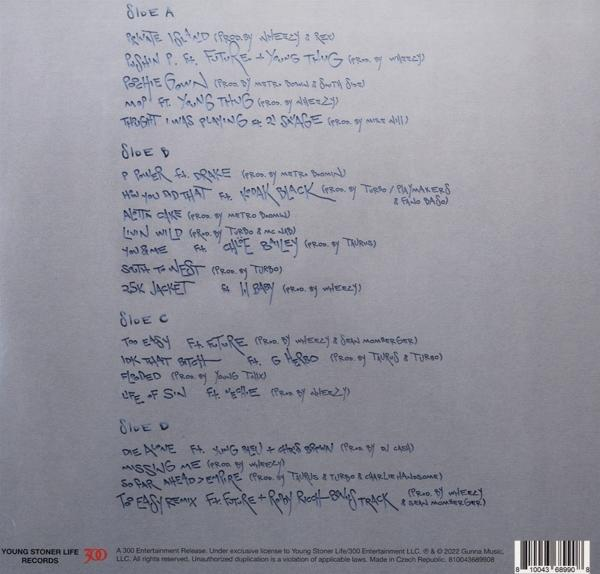 SIDE A
PRIVATE ISLAND (PROD. BY WHEEZY & REX)
PUSHIN P. Ft. FUTURE + YOUNG THUG (PROD. BY WHEEZY)
POOCHIE GOWN (PROD. BY METRO BOOMIN & SOUTH SIDE)
MOP FT. YOUNG THUG (PROD. BY WHEEZY)
THOUGHT I WAS PLAYING Ft. 21 SAVAGE (PROD. BY MIKE WILL)
SIDE B
P POWER Ft. DRAKE (PROD. BY METRO BOOMIN)
HOW YOU DID THAT Ft. KODAK BLACK (PROD. BY TURBO / PLAYMAKERS
& FANO BASO)
ALOTTA CAKE (PROD. BY METRO BOOMIN)
LIVIN WILD (PROD. BY TURBO & MC NAB)
YOU & ME Ft. CHLÖE BAILEY (PROD. BY TAURUS)
SOUTH TO WEST (PROD. BY TURBO)
25K JACKET Ft. lil BABY (PROD. BY WHEEZY)
SIDE C
TOO EASY Ft. FUTURE (PROD. BY WHEEZY & SEAN MOMBERGER)
IDK THAT BITCH Ft. G HERBO (PROD. BY TAURUS & TURBO)
FLOODED (PROD. BY YOUNG TWIX)
LIFE OF SIN Ft. NECHIE (PROD. BY WHEEZY)
SIDE D
DIE ALONE Ft. YUNG BLEU + CHRIS BROWN (PROD. BY DJ CASH)
MISSING ME (PROD. BY WHEEZY)
SO FAR AHEAD > EMPIRE (PROD. BY TAURUS & TURBO & CHARLIE HANDSOME)
TOO EASY REMIX Ft. FUTURE + RODDY RICCH - BONUS TRACK (PROD. BY WHEEZY
& SEAN MOMBERGER)
YOUNG STONER LIFE RECORDS
300
A 300 Entertainment Release. Under exclusive license to Young Stoner Life/300 Entertainment LLC. ℗ & © 2022 Gunna Music,
LLC. All rights reserved. Unauthorized duplication is a violation of applicable laws. Made in Czech Republic. 810043689908
8 10043 68990 8